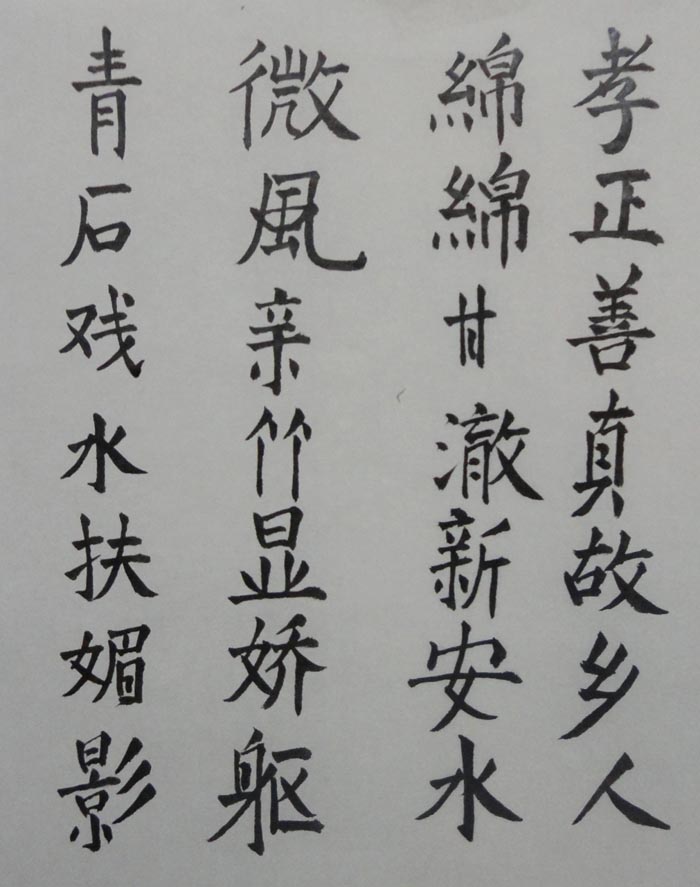 孝正善真故乡人
綿綿甘澈新安水
微風亲竹显娇躯
青石戏水扶媚影